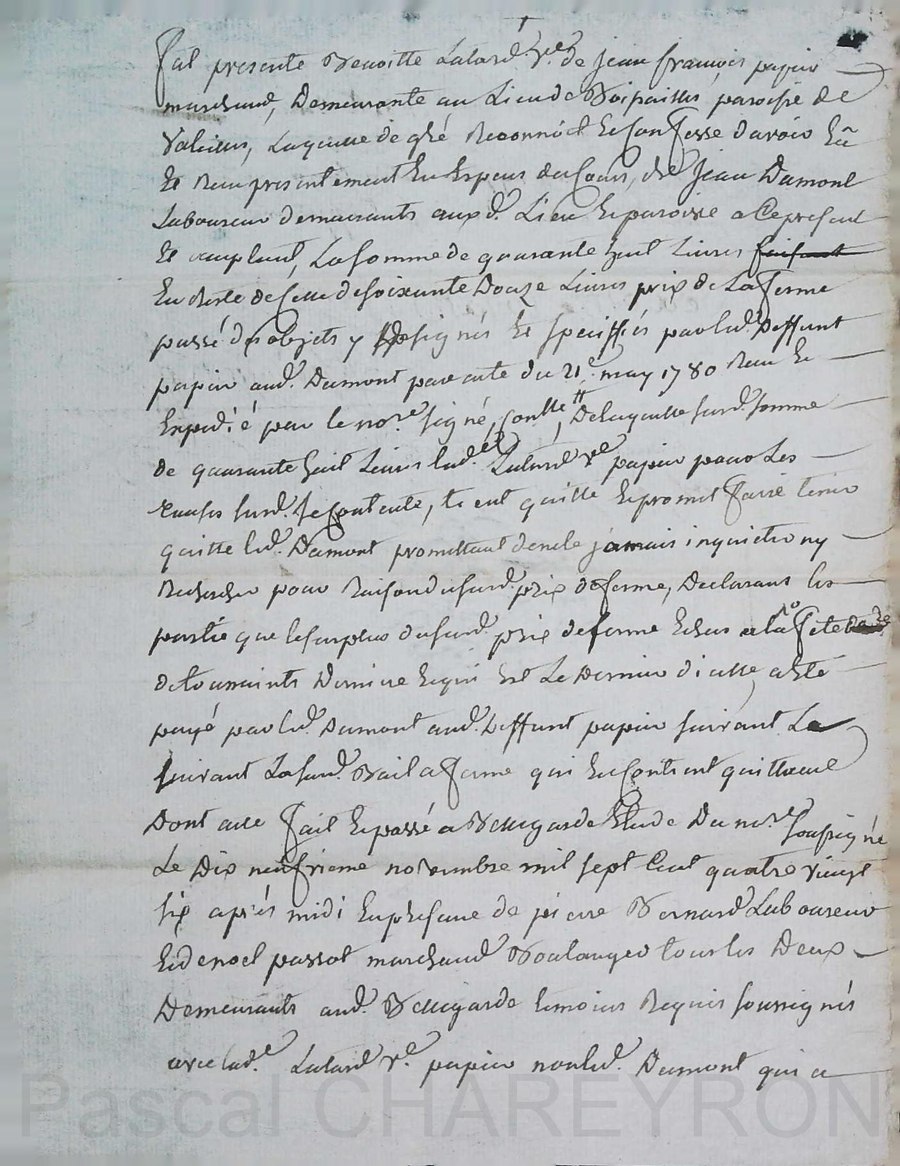 fut presente Benoitte Latard v.e de jean françois papin
marchand, Demeurante au Lieu de Boipaillis, paroisse de
Valeilles, Laquelle de gré Reconnoit et Confesse davoir Eû
et Reçu presentement En Especes du Cours, de Jean Dumont
Laboureur demeurants auxd. Lieu et paroisse a Ce present
et acceptant, La somme de quarante huit Livres faisant
En Reste de Celle de soixante Douze Livres prix de La ferme
passé des objets y Désignés et spéciffiés par led. Deffunt
papin aud. Dumont par acte du 21.e may 1780 Reçu Et
Expedié par le no.re signé, Contt.e, De laquelle surd. somme
de quarante huit Livres lad.e Latard v.e papin pour Les
Causes surd. se Contente, tient quitte et promet faire tenir
quitte led. Dumont promettant de ne le jamais inquieter ny
Rechercher pour Raison du surd. prix de ferme, Declarant les
partie que le surplus du surd. prix de ferme Echus a la fete
de toussaints Derniere et qui Est Le Dernier d'icelle, a Eté
payé par led. Dumont aud. Deffunt papin suivant La
suivant La surd. Bail a ferme qui En Contient quittance
Dont acte fait et passé a Bellegarde Etude Du no.re soussigné
Le Dix neufvieme novembre mil sept Cent quatre vingt
six après midi En presence de pierre Bernard Laboureur
Et de noel passot marchand Boulanger tous les Deux
Demeurants aud. Bellegarde temoins Requis soussignés
avec lad.e Latard v.e papin non led. Dumont qui a
Pascal CHAREYRON